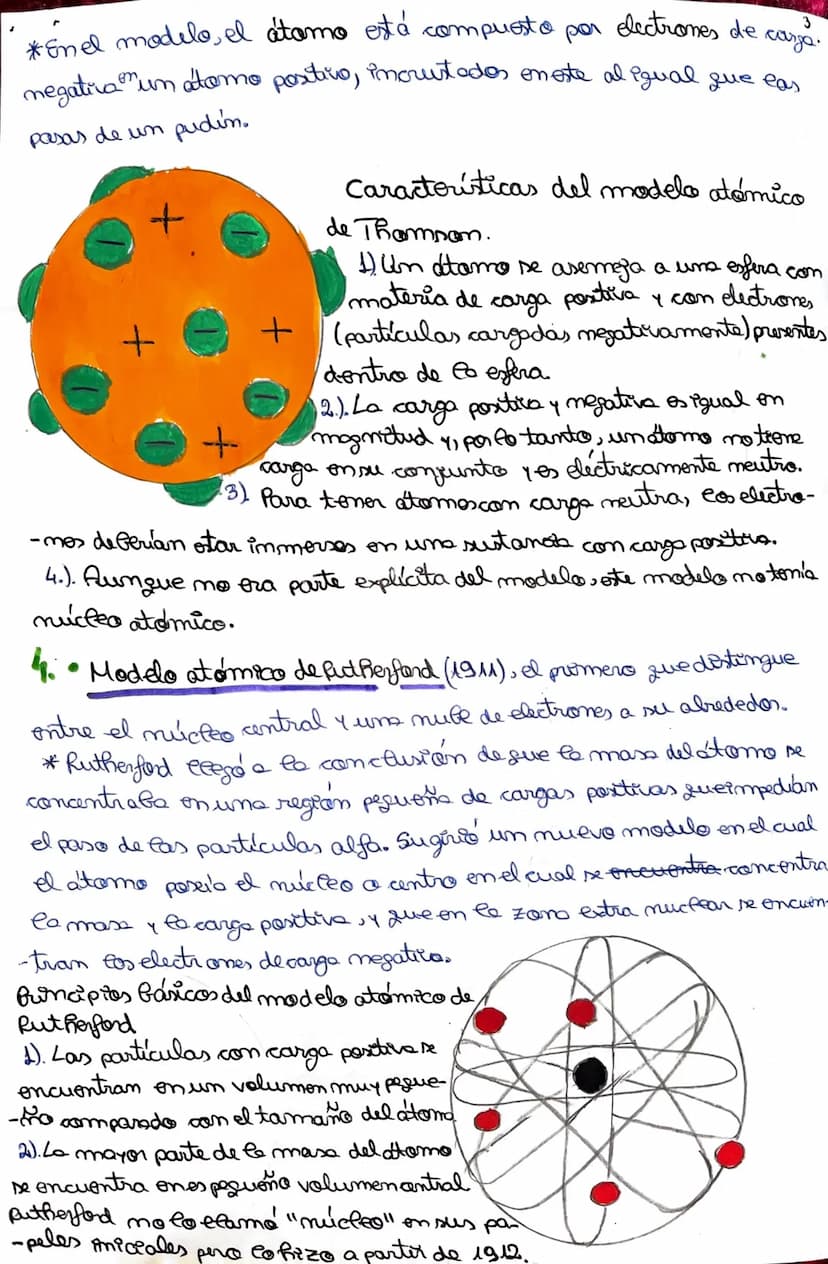 3
*En el modelo, el átomo está compuesto por electrones de carga
negativa en un átomo positivo, incrustados en este al igual que las
pasas de un pudín.
Características del modelo atómico
de Thomson.
1) Un átomo se asemeja a una esfera con
materia de carga positiva y con electrones
(partículas cargadas negativamente) presentes
dentro de la esfera.
2.). La carga positiva y negativa es igual en
magnitud y, por lo tanto, un átomo no tiene
carga en su conjunto y es eléctricamente neutro.
3) Para tener átomos con carga neutra, los electro-
-nes deberían estar inmersos en una sustancia con carga positiva.
4.). Aunque no era parte explícita del modelo, este modelo no tenía
núcleo atómico.
4. • Modelo atómico de Rutherford (1911), el primero que distingue
entre el núcleo central y una nube de electrones a su alrededor.
* Rutherford llegó a la conclusión de que la masa del átomo se
concentraba en una región pequeña de cargas positivas que impedían
el paso de las partículas alfa. Sugirió un nuevo modelo en el cual
el átomo poseía el núcleo o centro en el cual se encuentra concentra
la masa y la carga positiva, y que en la zona extra nuclear se encuen-
-tran los electrones de carga negativa.
Principios básicos del modelo atómico de
Rutherford
1). Las partículas con carga positiva se
encuentran en un volumen muy peque-
-ño comparado con el tamaño del átomo
2). La mayor parte de la masa del átomo
se encuentra en es pequeño volumen central
Rutherford no lo llamó "núcleo" en sus pa-
-peles iniciales pero lo hizo a partir de 1912.
+
−
−
+
−
+
−
−
−
+